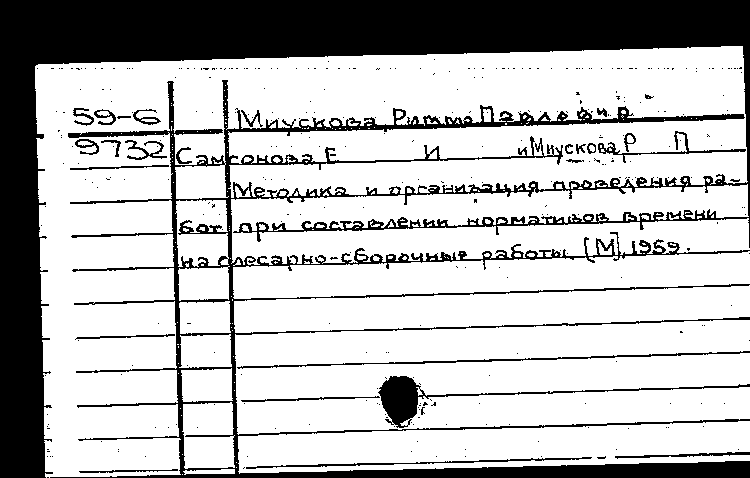 59-6 Миускова, Римма Павловна
9732 Самсонова, Е И и Миускова, Р П
Методика и организация проведения ра-
бот при составлении нормативов времени
на слесарно-сборочные работы. [М], 1959.